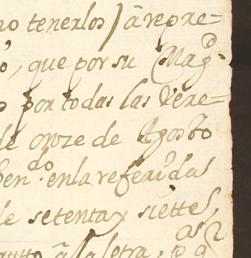 no tenerlos) à repre=
que por su Mag.d
por todas las Vere=
de onze de Agosto
en.do en la referidas
de setenta y siette
à la letra,